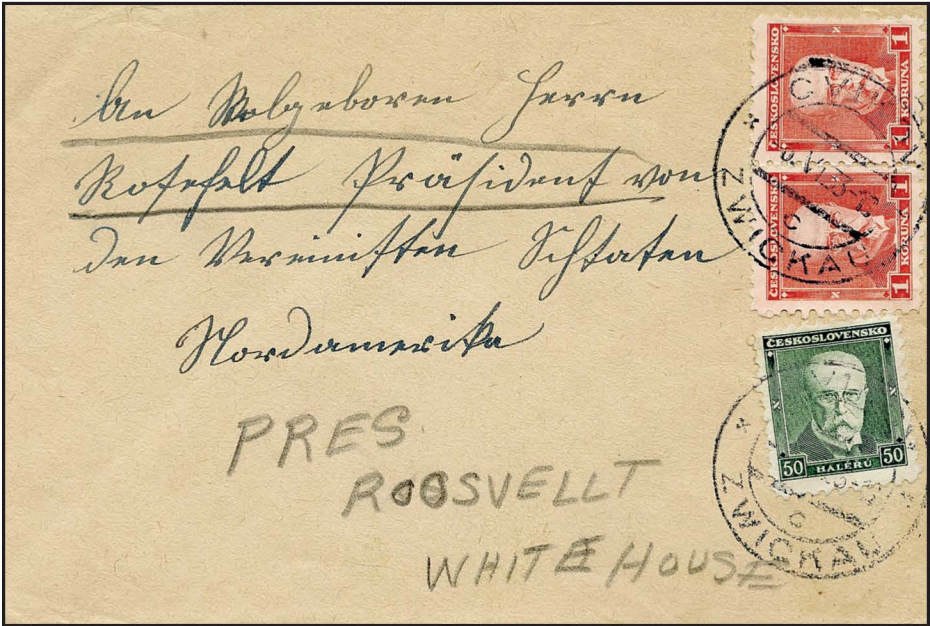 An Wolgeboren Herrn
Rosefelt Präsident von
den Vereinisten Schtaten
Nordamerika
PRES.
ROOSVELLT
WHITE HOUSE
ČESKOSLOVENSKO
1 KORUNA 1
ČESKOSLOVENSKO
1 KORUNA 1
ČESKOSLOVENSKO
50 HALÉRŮ 50
ZWICKAU
C
ZWICKAU
C